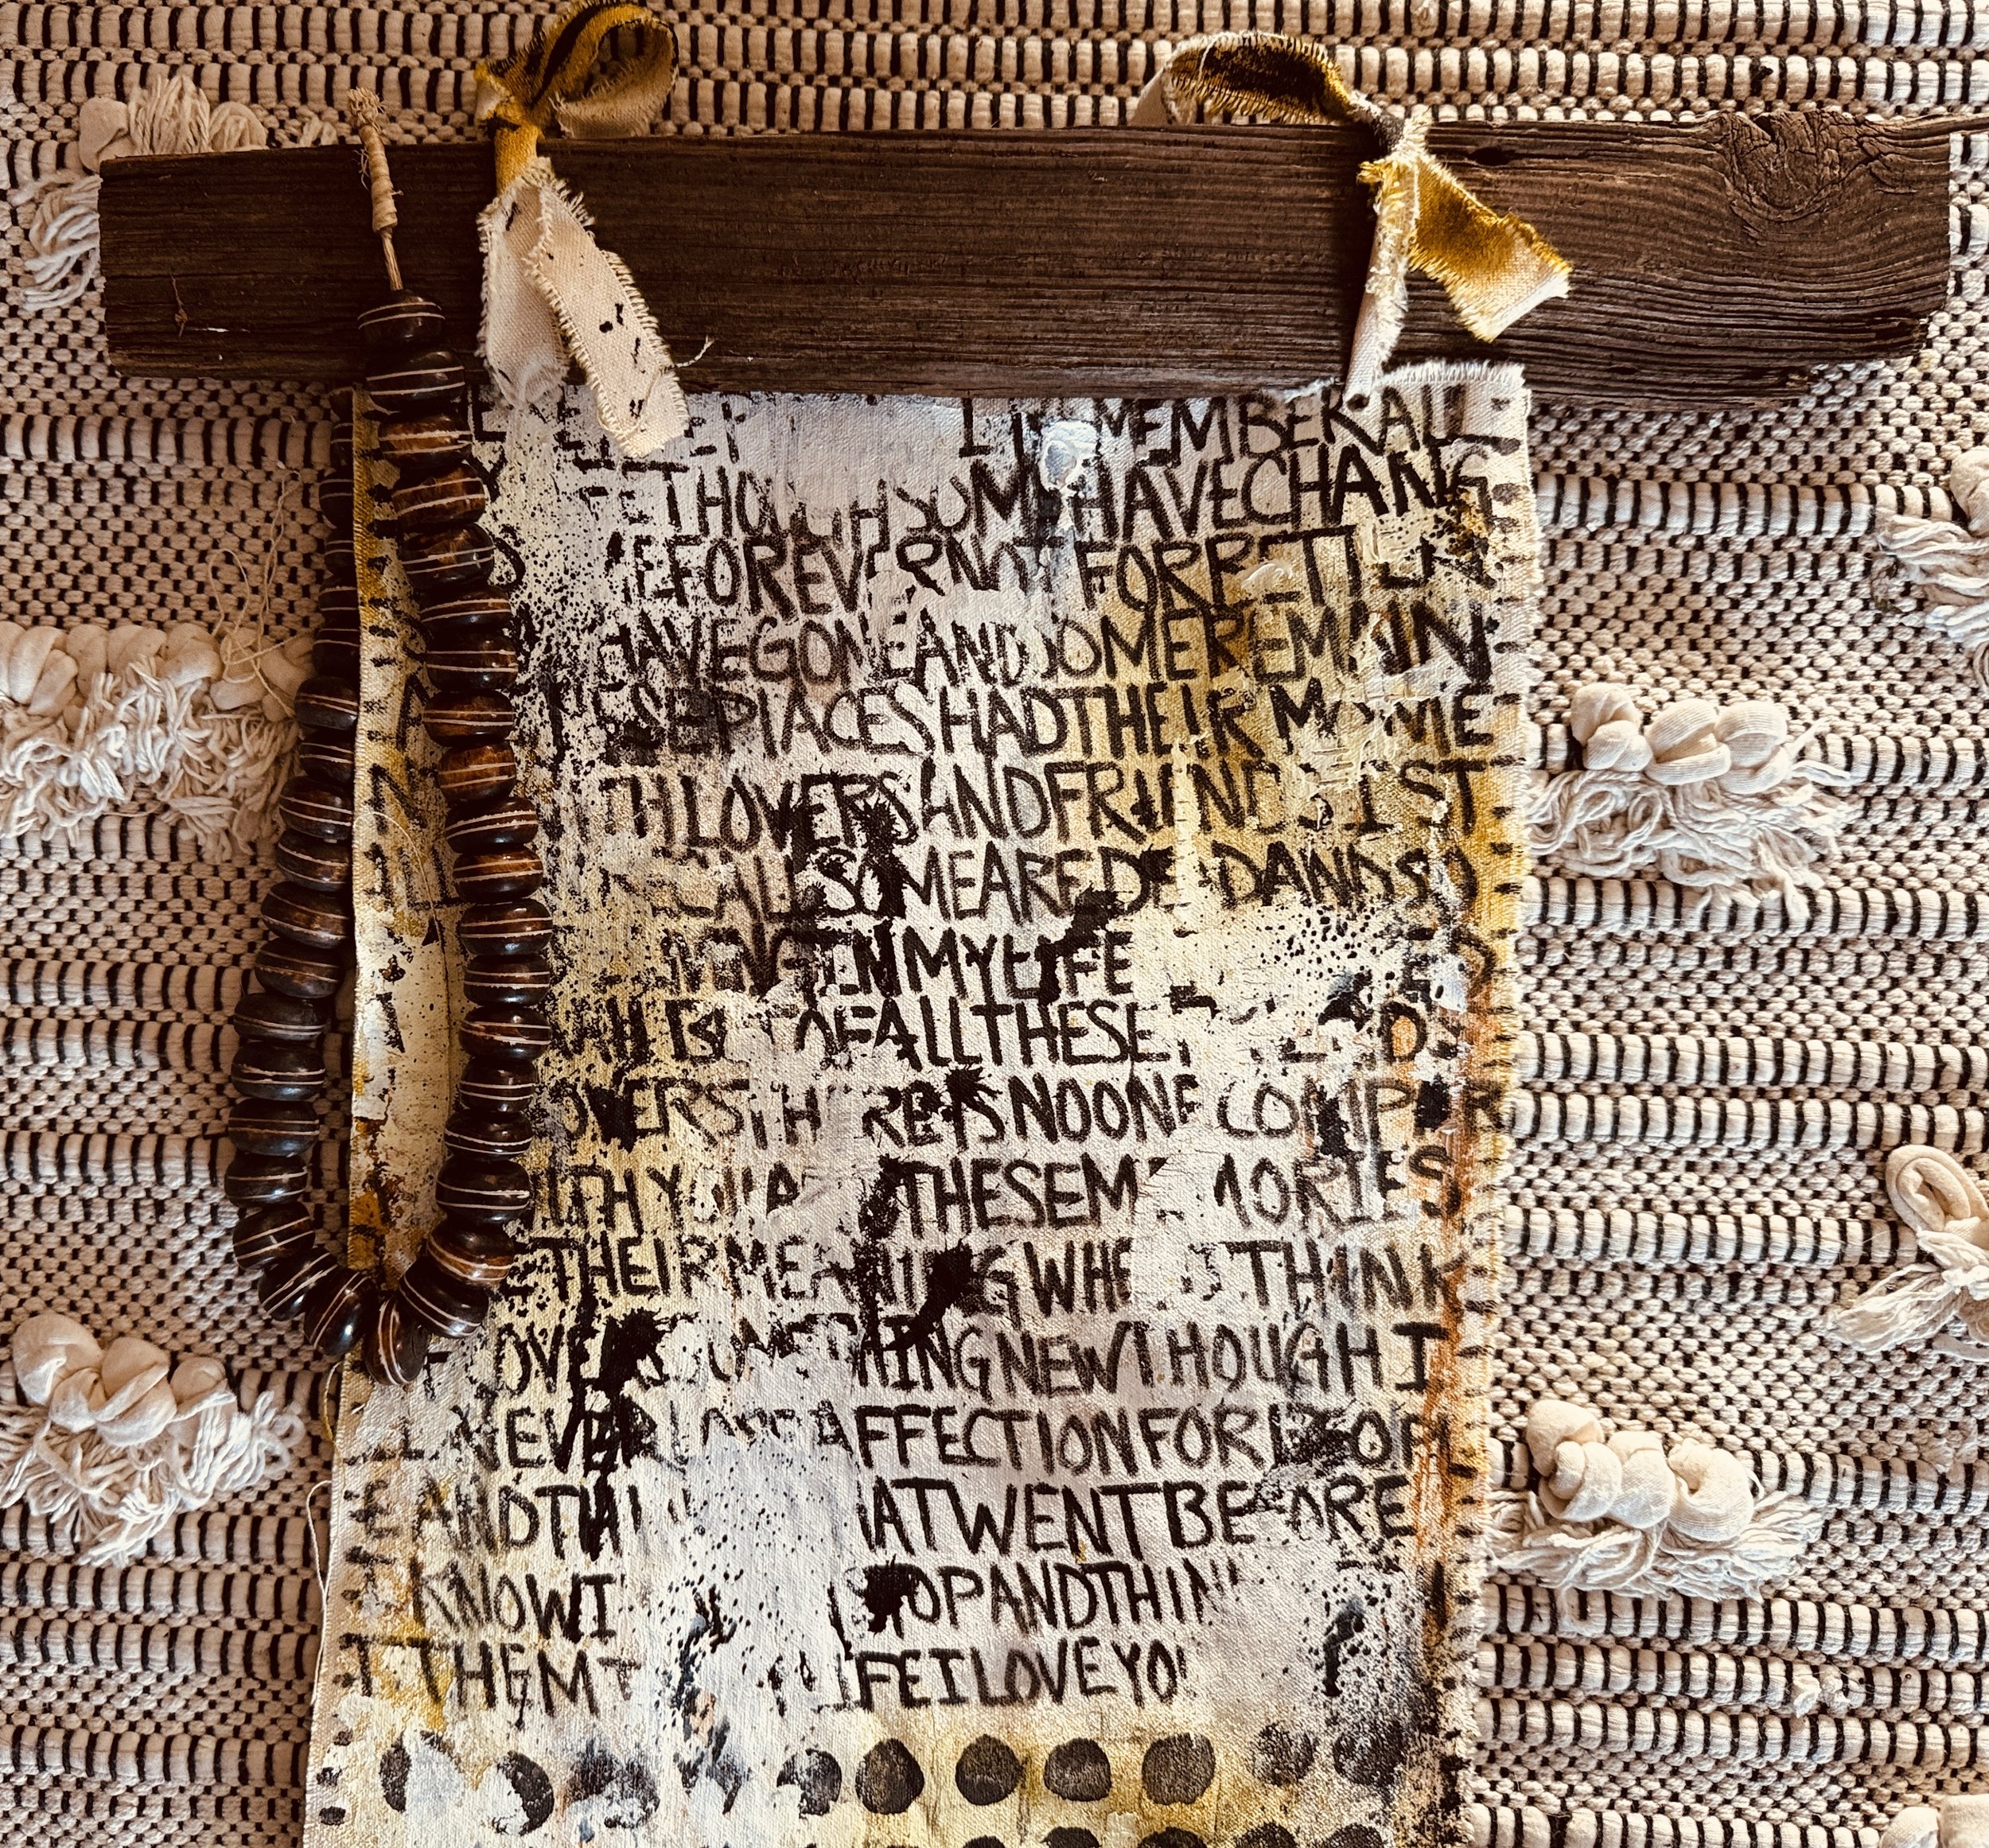 I REMEMBER ALL
THOUGH SOME HAVE CHANG
FOREVER NOT FOR
HAVE GONE AND SOME REMAIN
THESE PLACES HAD THEIR MOME
TH LOVERS AND FRIENDS I ST
CALL SOME ARE DEAD AND SO
LIVING IN MY LIFE ED
BUT OF ALL THESE
OVERS THERE IS NO ONE COMPAR
ITH YOU THESE MEMORIES
E THEIR MEANING WHEN I THINK
F LOVE AS SOMETHING NEW THOUGH I
LL NEVER AFFECTION FOR PEOPL
E AND THAT WENT BEFORE
I KNOW I STOP AND THIN
T THEM LIFE I LOVE YO